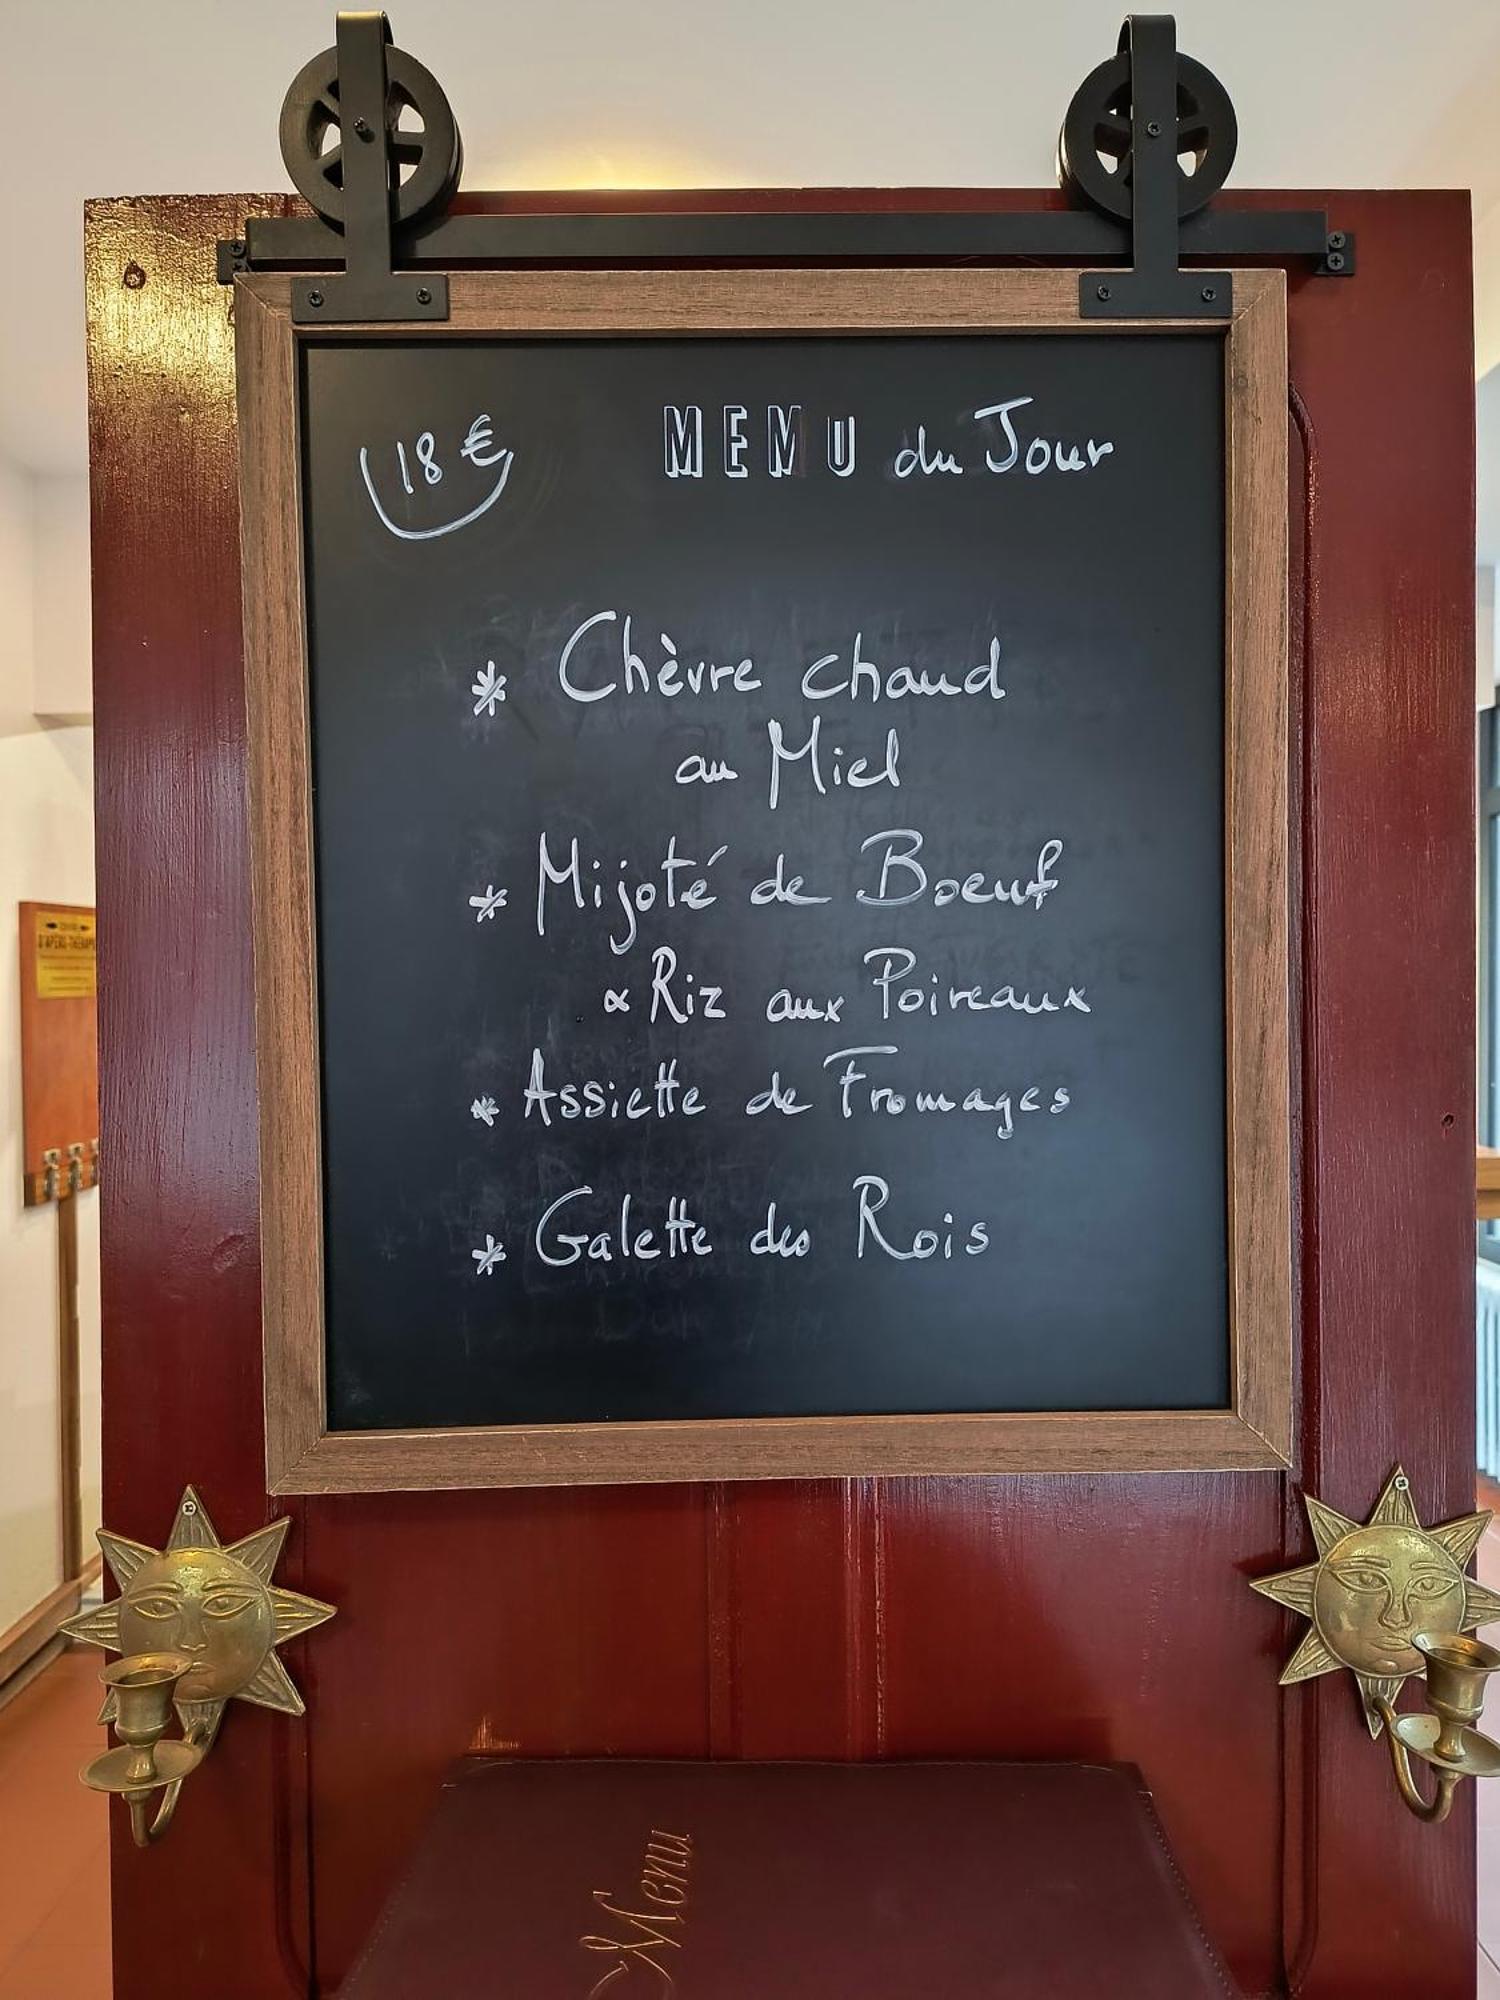 18 €
MENU du Jour
* Chèvre chaud
au Miel
* Mijoté de Boeuf
& Riz aux Poireaux
* Assiette de Fromages
* Galette des Rois
D'APÉRO-THÉRAPIE
Menu